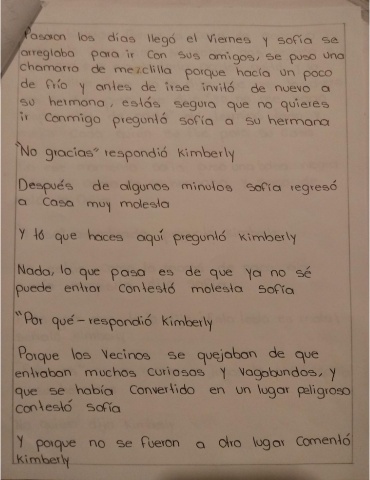 Pasaron los días llegó el Viernes y sofía se
arreglaba para ir con sus amigos, se puso una
chamarra de mezclilla porque hacía un poco
de frío y antes de irse invitó de nuevo a
su hermana, estás segura que no quieres
ir conmigo preguntó sofía a su hermana
"No gracias" respondió Kimberly
Después de algunos minutos sofía regresó
a casa muy molesta
Y tó que haces aquí preguntó Kimberly
Nada, lo que pasa es de que ya no sé
puede entrar contestó molesta Sofía
"Por qué - respondió Kimberly
Porque los Vecinos se quejaban de que
entraban muchos curiosos y vagabundos, y
que se había convertido en un lugar peligroso
contestó sofía
Y porque no se fueron a otro lugar comentó
Kimberly